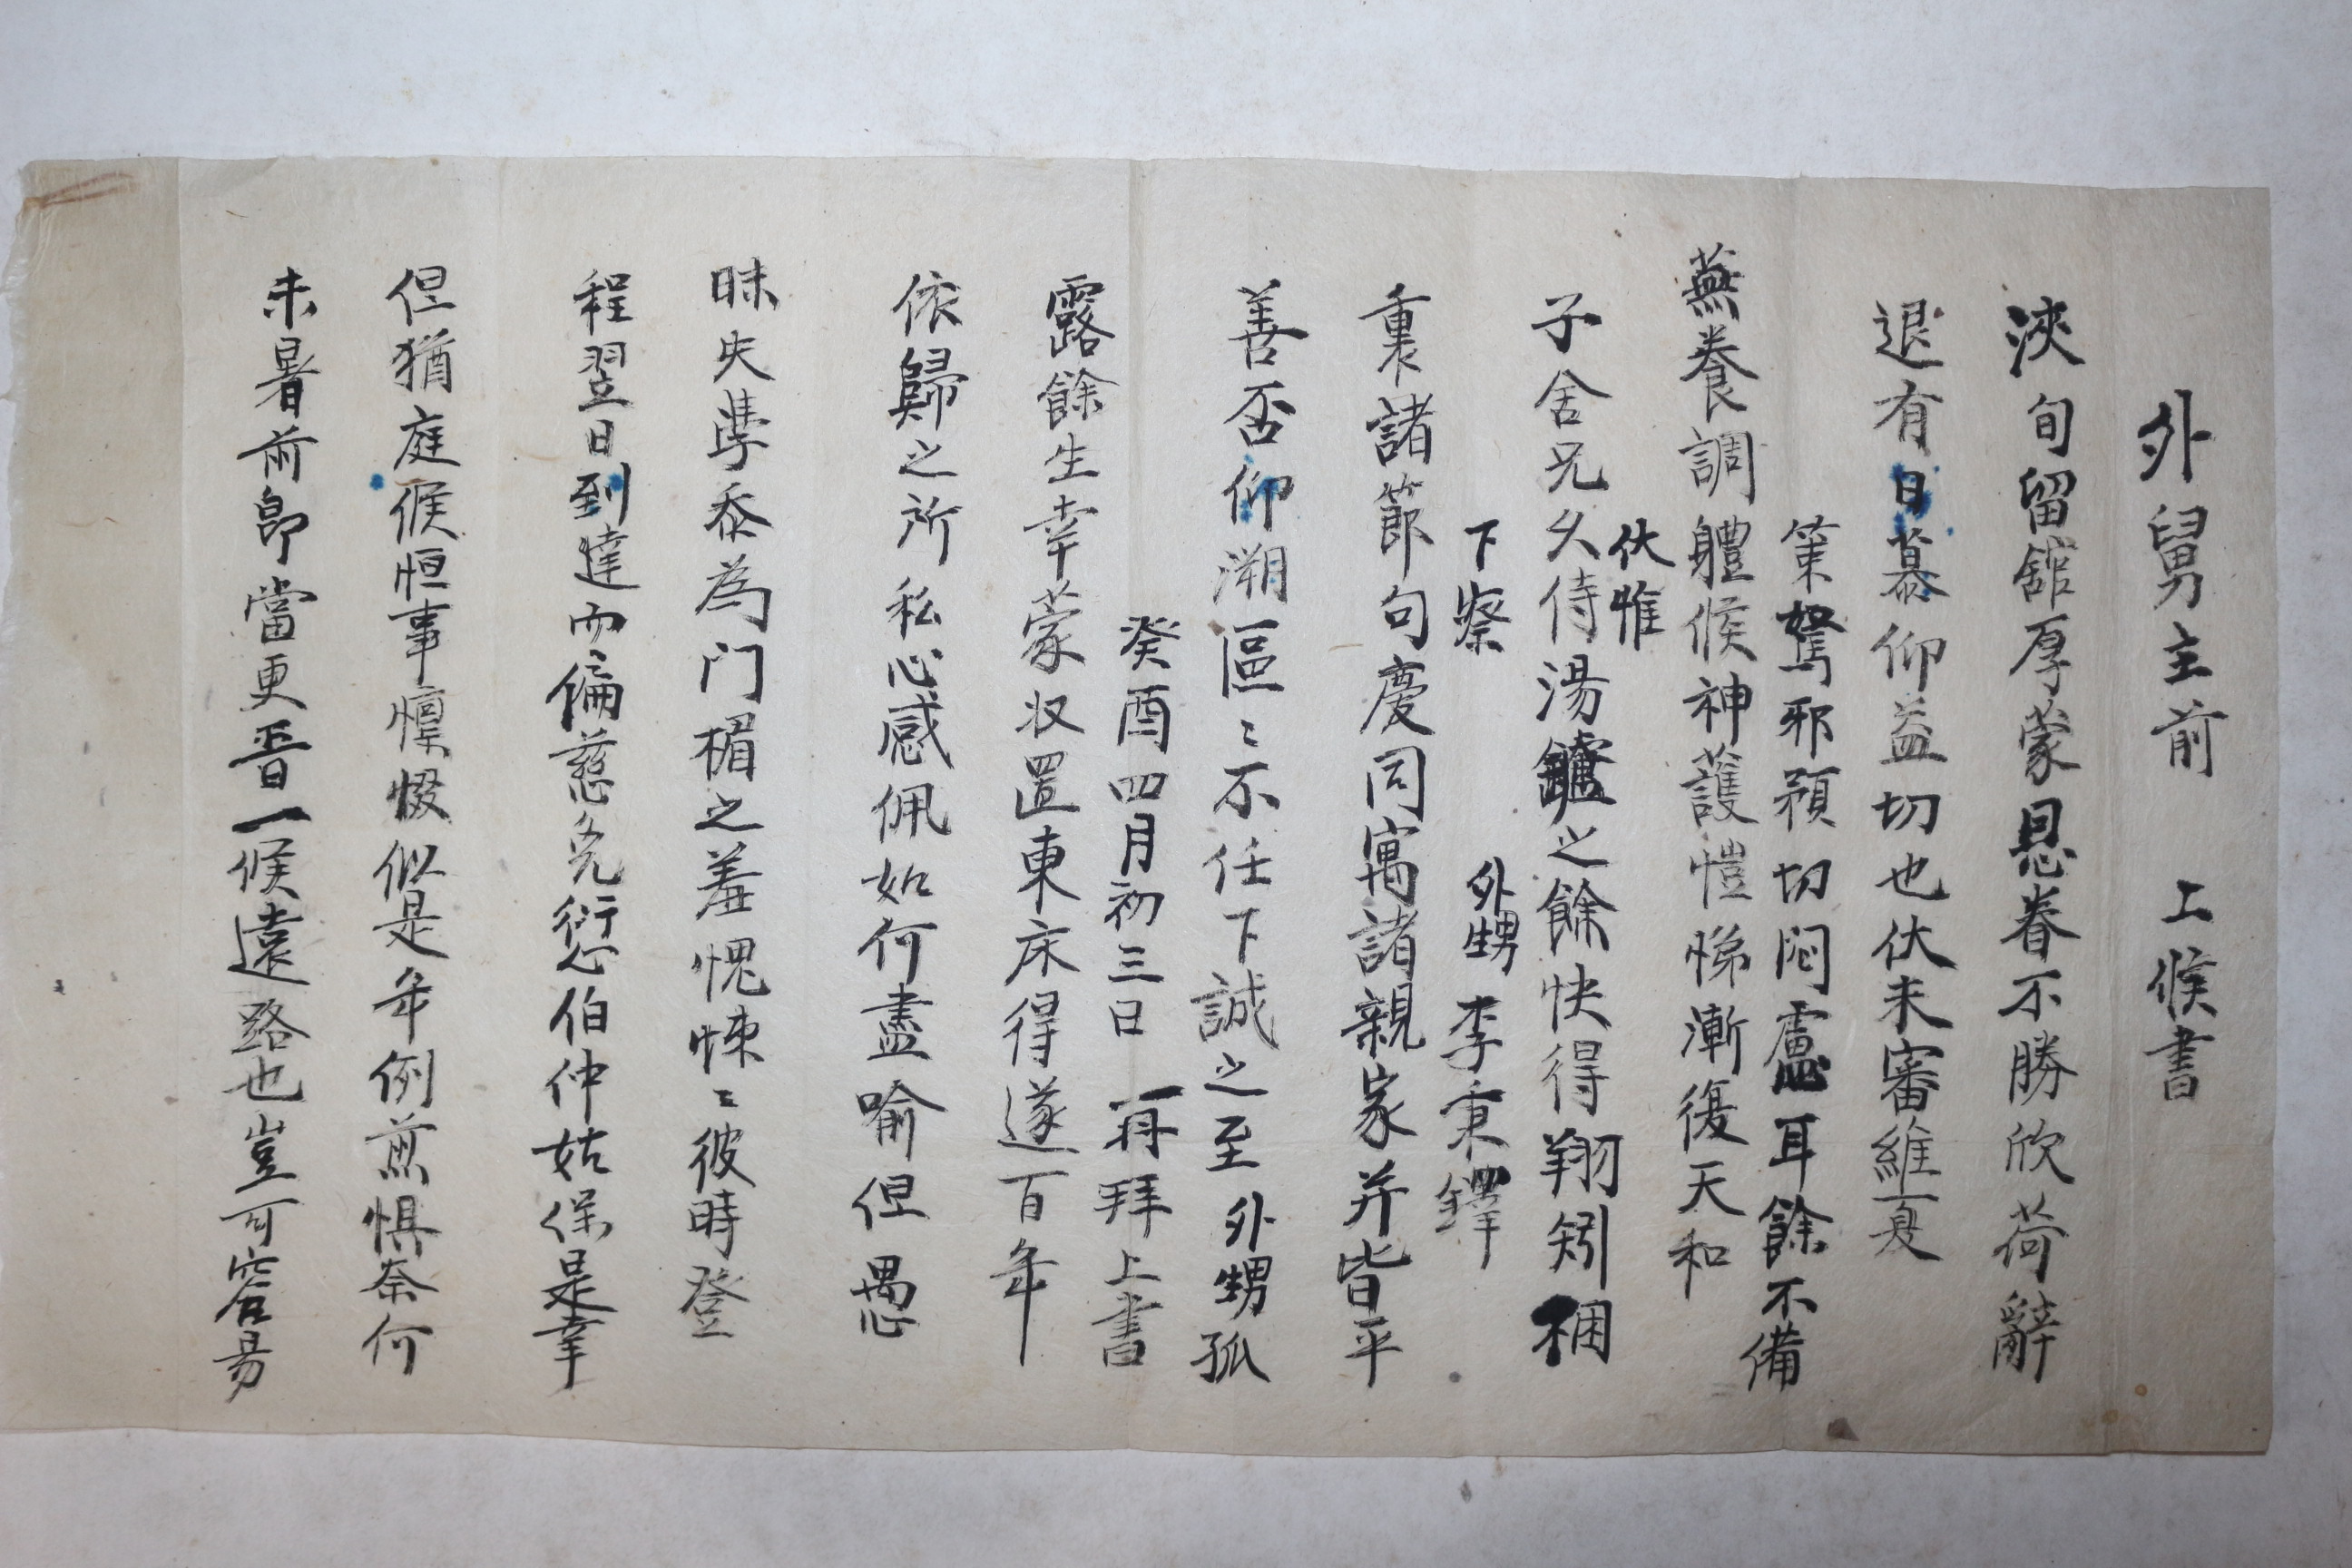 外舅主前　上候書
浹旬留館厚蒙恩眷不勝欣荷辭
退有日慕仰益切也伏未審維夏
燕養調軆候神護愷悌漸復天和
子舍兄久侍湯鑪之餘快得翔矧梱
裏諸節句慶同寓諸親家并皆平
善否仰溯區〻不任下誠之至外甥孤
露餘生幸蒙收置東床得遂百年
依歸之所私心感佩如何盡喻但愚
昧失學忝為门楣之羞愧悚〻彼時登
程翌日到達而偏慈免愆伯仲姑保是幸
但猶庭候恒事懍惙似是年例煎惧奈何
未暑前卽當更晋一候遠路也豈可容易
策駑耶預切悶慮耳餘不備
伏惟
下察
外甥李秉鐸
癸酉四月初三日　再拜上書